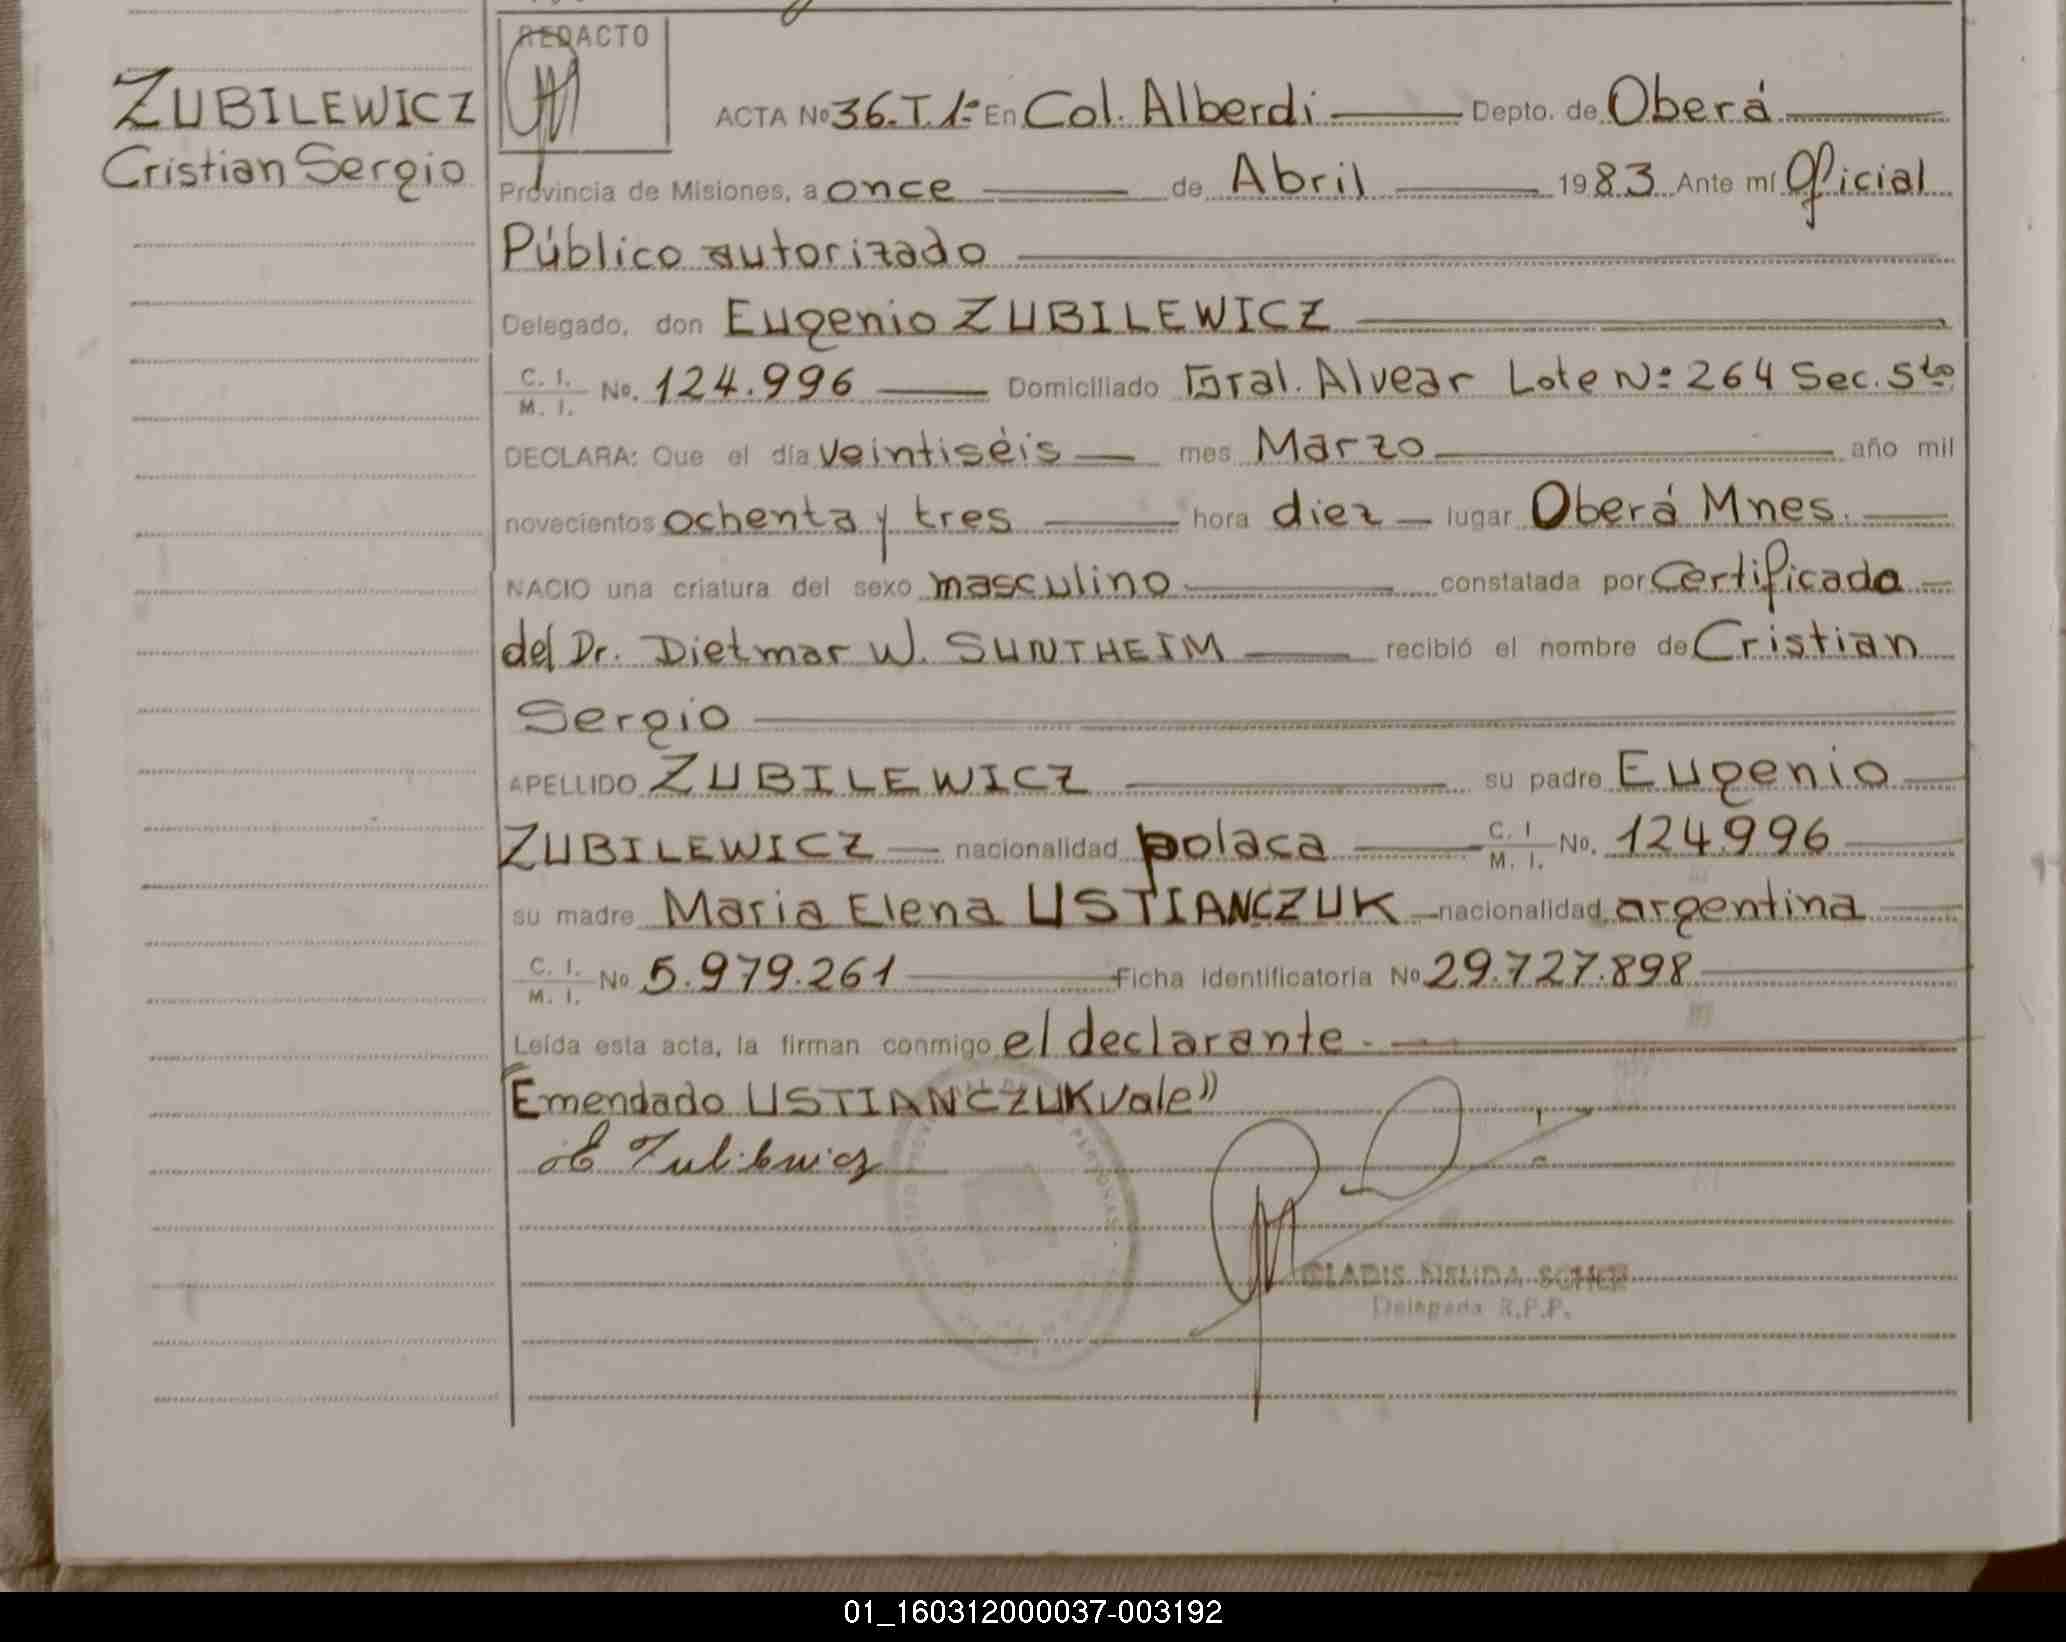 REDACTO
ZUBILEWICZ
Cristian Sergio
ACTA Nº 36.T.1º En Col. Alberdi Depto. de Oberá
Provincia de Misiones, a once de Abril 1983 Ante mí Oficial
Público autorizado
Delegado, don Eugenio ZUBILEWICZ
C. I. M. I. No. 124.996 Domiciliado Gral. Alvear Lote Nº 264 Sec. 5ta
DECLARA: Que el día veintiséis mes Marzo año mil
novecientos ochenta y tres hora diez lugar Oberá Mnes.
NACIO una criatura del sexo masculino constatada por Certificado
del Dr. Dietmar W. SUNTHEIM recibió el nombre de Cristian
Sergio
APELLIDO ZUBILEWICZ su padre Eugenio
ZUBILEWICZ nacionalidad polaca C. I M. I. No. 124.996
su madre Maria Elena USTIANCZUK nacionalidad argentina
C. I. M. I. Nº 5.979.261 Ficha identificatoria Nº 29.727.898
Leída esta acta, la firman conmigo el declarante.
"Emendado USTIANCZUK vale"
E Zubilewicz
GLADIS NELIDA
Delegada R.P.P.
01_160312000037-003192